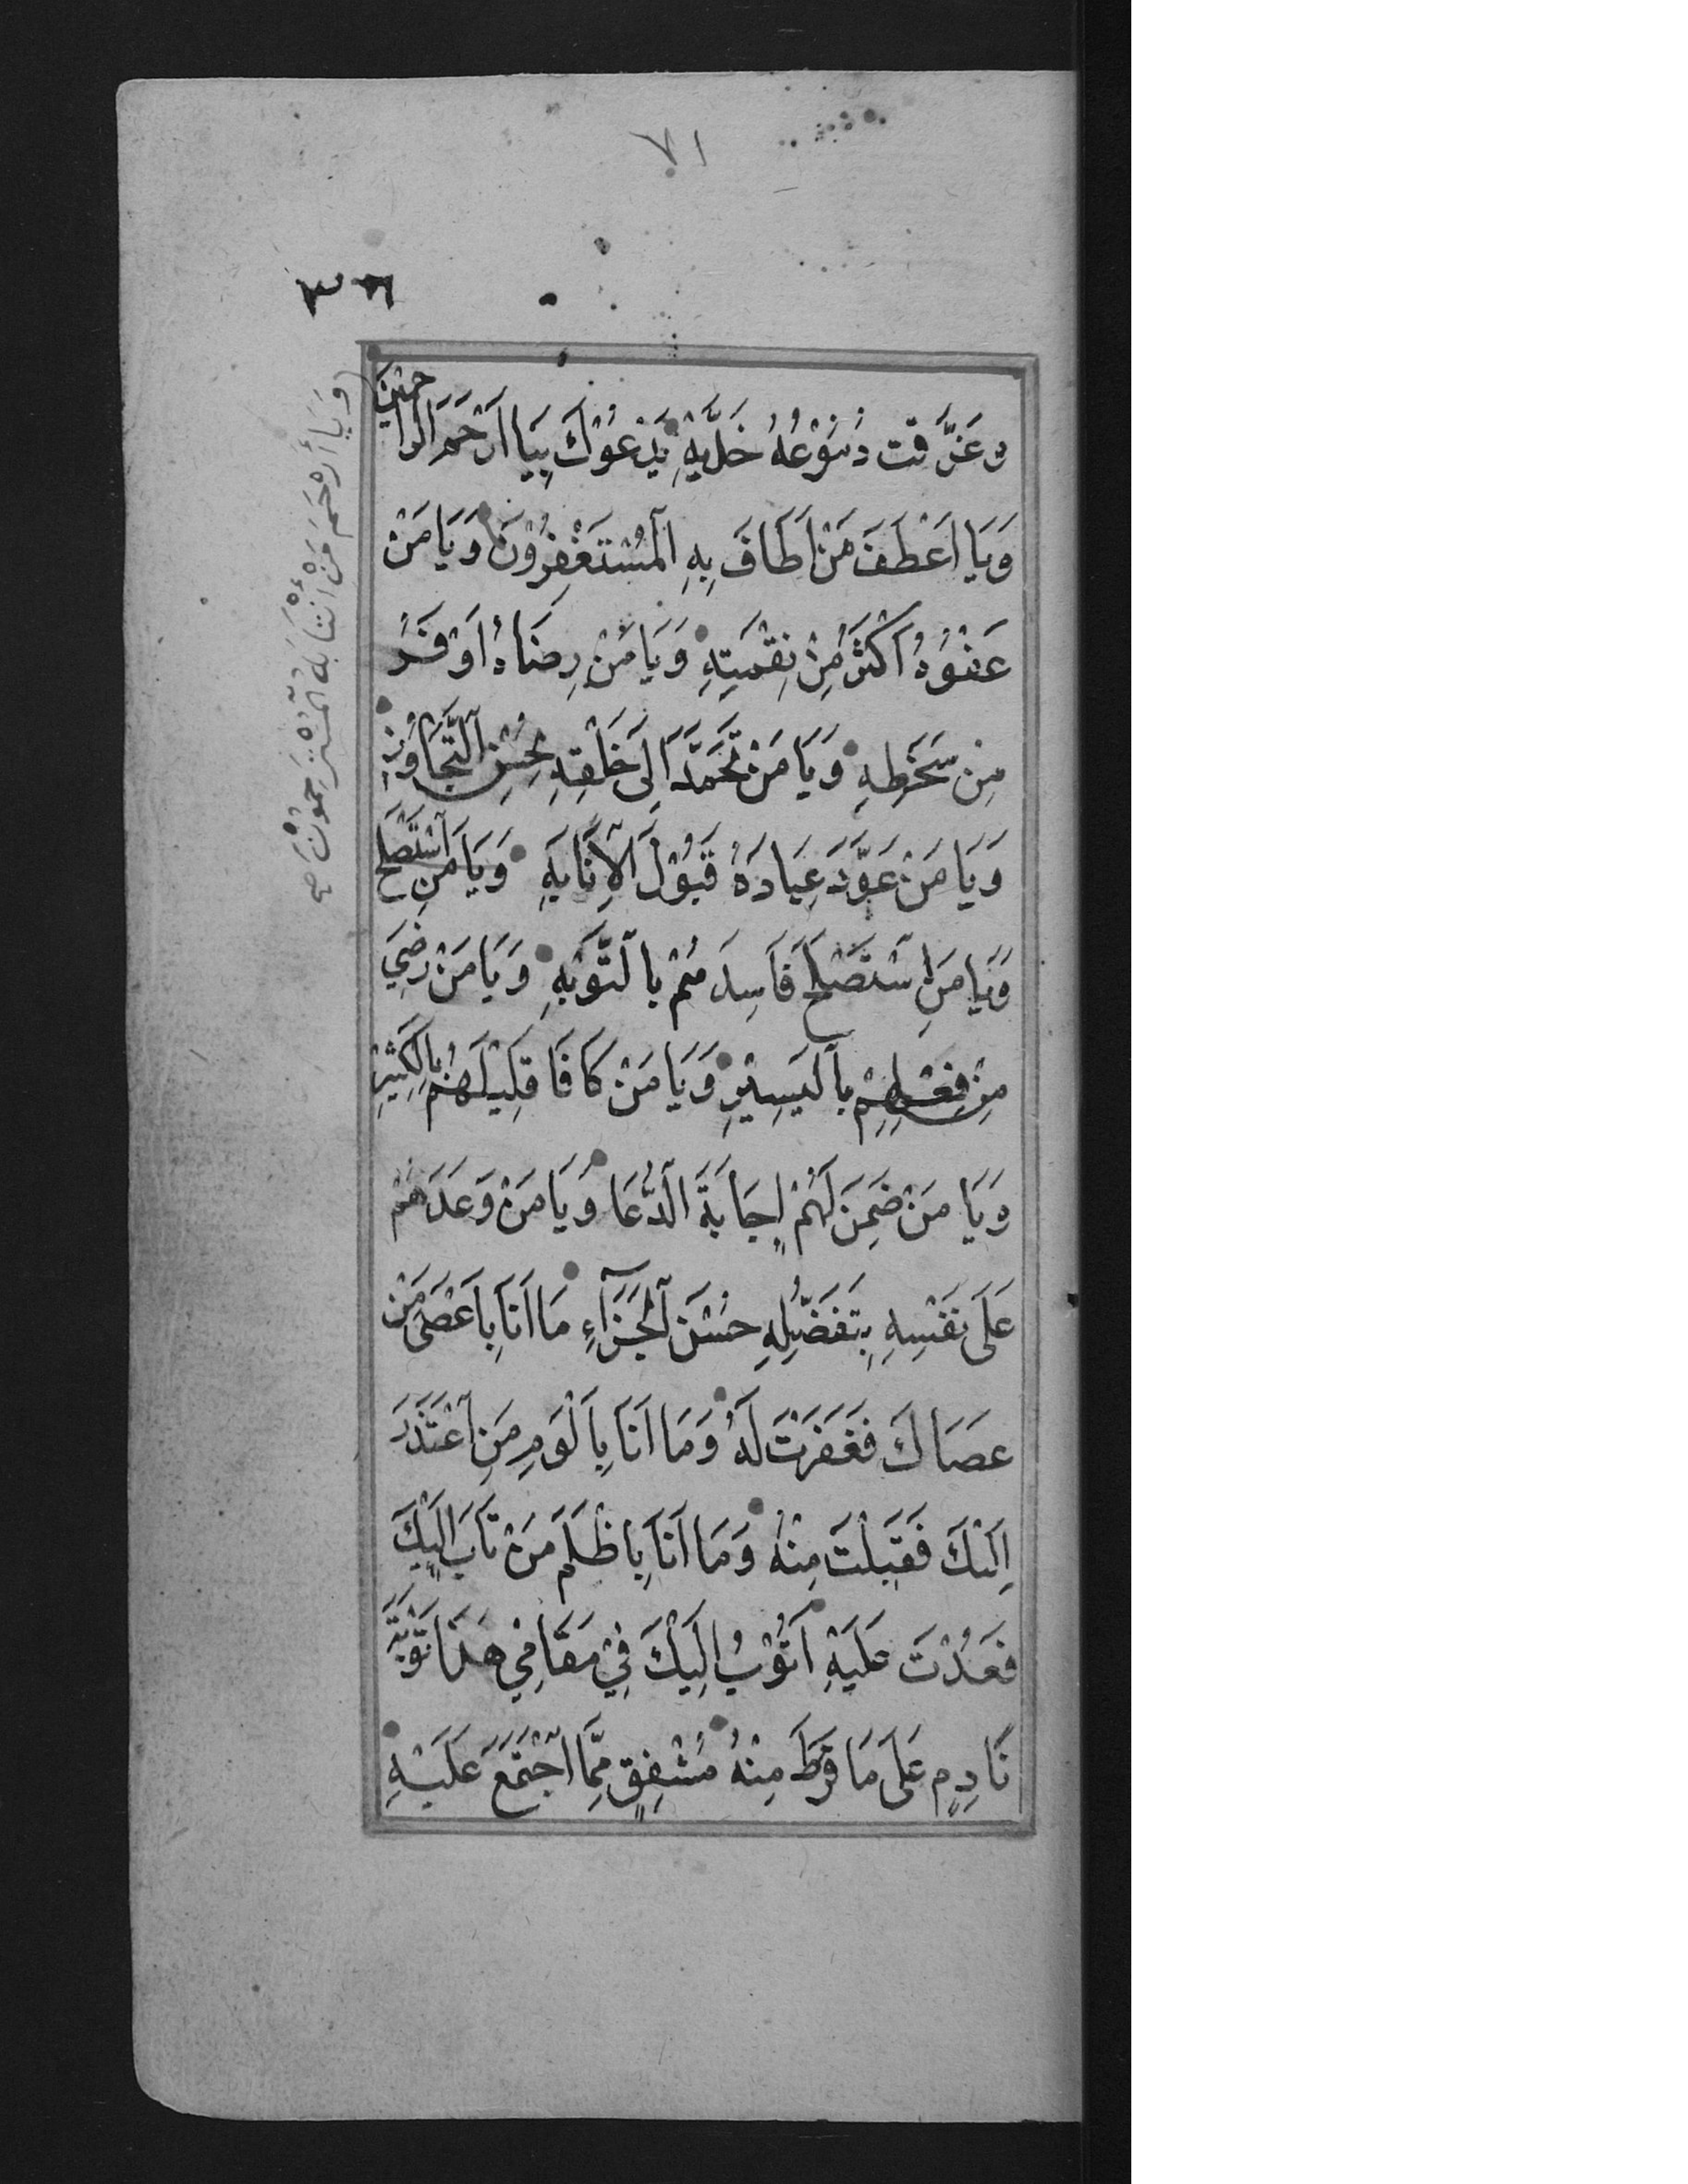 ٧١
٣٦
وَغَرَّقَت دُمُوْعُهُ خَدَّيْهِ يَدْعُوْكَ بِيَا اَرْحَمَ الرَّاحِمِيْنَ
وَيَا اَعْطَفَ مَنْ اَطَافَ بِهِ الْمُسْتَغْفِرُوْنَ وَيَا مَنْ
عَفْوُهُ اَكْثَرُ مِنْ نِقْمَتِهِ وَيَا مَنْ رِضَاهُ اَوْفَرُ
مِنْ سَخَطِهِ وَيَا مَنْ تَحَمَّدَ اِلَى خَلْقِهِ بِحُسْنِ التَّجَاوُزِ
وَيَا مَنْ عَوَّدَ عِبَادَهُ قَبُوْلَ الْاِنَابَةِ وَيَا مَنِ اسْتَصْلَحَ
وَيَا مَنِ اسْتَصْلَحَ فَاسِدَهُمْ بِالتَّوْبَةِ وَيَا مَنْ رَضِيَ
مِنْ فِعْلِهِمْ بِالْيَسِيْرِ وَيَا مَنْ كَافَا قَلِيْلَهُمْ بِالْكَثِيْرِ
وَيَا مَنْ ضَمِنَ لَهُمْ اِجَابَةَ الدُّعَا وَيَا مَنْ وَعَدَهُمْ
عَلَى نَفْسِهِ بِتَفَضُّلِهِ حُسْنَ الْجَزَآءِ مَا اَنَا بِاَعْصَى مَنْ
عَصَاكَ فَغَفَرْتَ لَهُ وَمَا اَنَا بِاَلْوَمِ مَنِ اعْتَذَرَ
اِلَيْكَ فَقَبِلْتَ مِنْهُ وَمَا اَنَا بِاَظْلَمِ مَنْ تَابَ اِلَيْكَ
فَعُدْتَ عَلَيْهِ اَتُوْبُ اِلَيْكَ فِيْ مَقَامِيْ هَذَا تَوْبَةَ
نَادِمٍ عَلَى مَا فَرَطَ مِنْهُ مُشْفِقٍ مِمَّا اجْتَمَعَ عَلَيْهِ
وَيَا أَرْحَمَ مَنِ انْتَابَهُ الْمُسْتَرْحِمُوْنَ صح